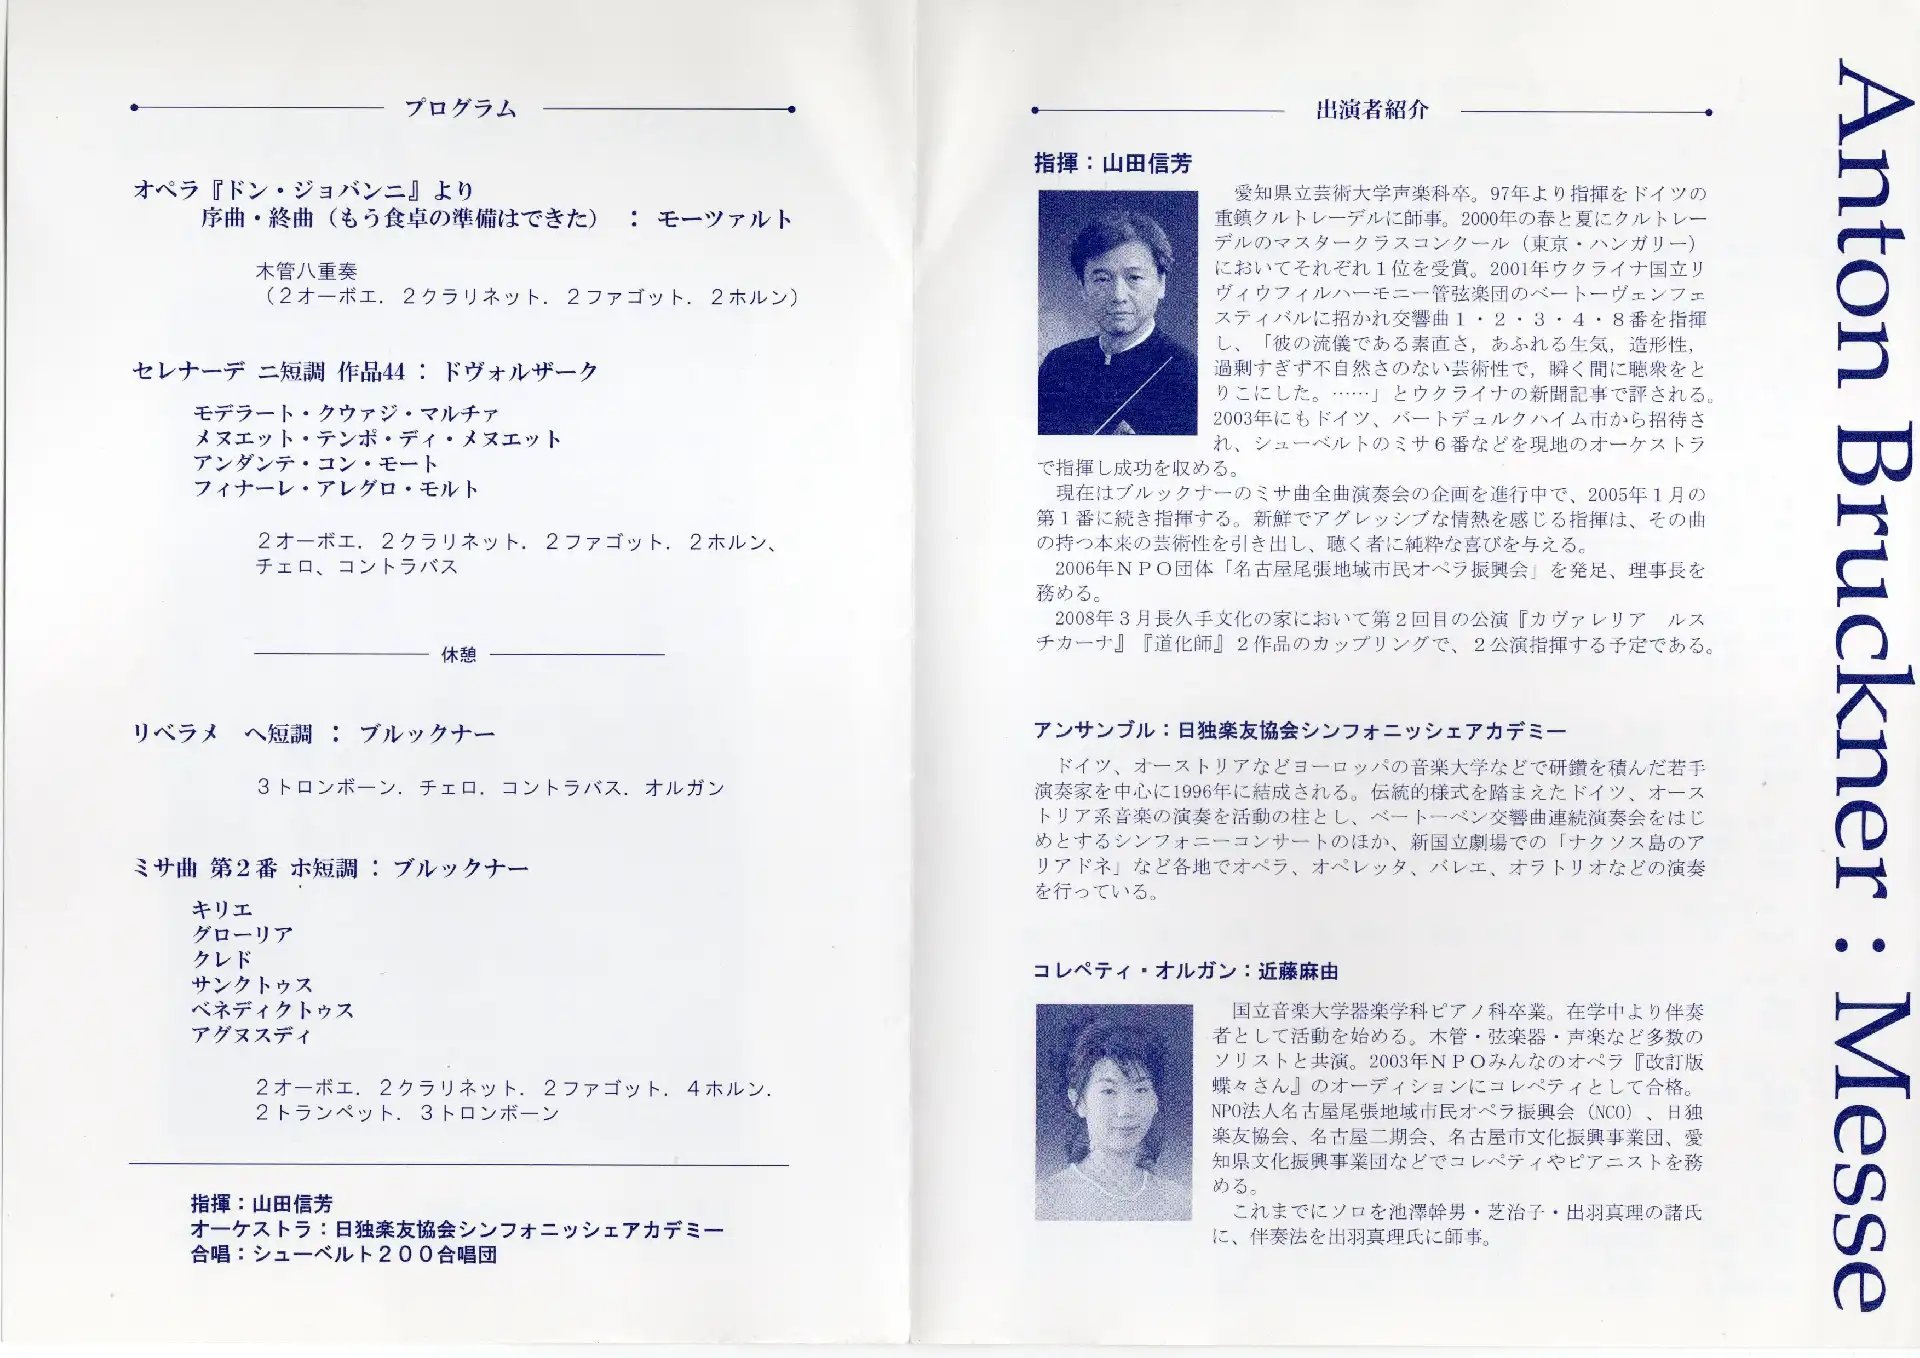 プログラム
オペラ『ドン・ジョバンニ』より
序曲・終曲（もう食卓の準備はできた） ： モーツァルト
木管八重奏
（２オーボエ．２クラリネット．２ファゴット．２ホルン）
セレナーデ ニ短調 作品44 ： ドヴォルザーク
モデラート・クウァジ・マルチァ
メヌエット・テンポ・ディ・メヌエット
アンダンテ・コン・モート
フィナーレ・アレグロ・モルト
２オーボエ．２クラリネット．２ファゴット．２ホルン、
チェロ、コントラバス
休憩
リベラメ　ヘ短調 ： ブルックナー
３トロンボーン．チェロ．コントラバス．オルガン
ミサ曲 第２番 ホ短調 ： ブルックナー
キリエ
グローリア
クレド
サンクトゥス
ベネディクトゥス
アグヌスディ
２オーボエ．２クラリネット．２ファゴット．４ホルン．
２トランペット．３トロンボーン
指揮：山田信芳
オーケストラ：日独楽友協会シンフォニッシェアカデミー
合唱：シューベルト２００合唱団
出演者紹介
指揮：山田信芳
愛知県立芸術大学声楽科卒。97年より指揮をドイツの
重鎮クルトレーデルに師事。2000年の春と夏にクルトレー
デルのマスタークラスコンクール（東京・ハンガリー）
においてそれぞれ１位を受賞。2001年ウクライナ国立リ
ヴィウフィルハーモニー管弦楽団のベートーヴェンフェ
スティバルに招かれ交響曲１・２・３・４・８番を指揮
し、「彼の流儀である素直さ，あふれる生気，造形性，
過剰すぎず不自然さのない芸術性で，瞬く間に聴衆をと
りこにした。……」とウクライナの新聞記事で評される。
2003年にもドイツ、バートデュルクハイム市から招待さ
れ、シューベルトのミサ６番などを現地のオーケストラ
で指揮し成功を収める。
現在はブルックナーのミサ曲全曲演奏会の企画を進行中で、2005年１月の
第１番に続き指揮する。新鮮でアグレッシブな情熱を感じる指揮は、その曲
の持つ本来の芸術性を引き出し、聴く者に純粋な喜びを与える。
2006年ＮＰＯ団体「名古屋尾張地域市民オペラ振興会」を発足、理事長を
務める。
2008年３月長久手文化の家において第２回目の公演『カヴァレリア　ルス
チカーナ』『道化師』２作品のカップリングで、２公演指揮する予定である。
アンサンブル：日独楽友協会シンフォニッシェアカデミー
ドイツ、オーストリアなどヨーロッパの音楽大学などで研鑽を積んだ若手
演奏家を中心に1996年に結成される。伝統的様式を踏まえたドイツ、オース
トリア系音楽の演奏を活動の柱とし、ベートーベン交響曲連続演奏会をはじ
めとするシンフォニーコンサートのほか、新国立劇場での「ナクソス島のア
リアドネ」など各地でオペラ、オペレッタ、バレエ、オラトリオなどの演奏
を行っている。
コレペティ・オルガン：近藤麻由
国立音楽大学器楽学科ピアノ科卒業。在学中より伴奏
者として活動を始める。木管・弦楽器・声楽など多数の
ソリストと共演。2003年ＮＰＯみんなのオペラ『改訂版
蝶々さん』のオーディションにコレペティとして合格。
NPO法人名古屋尾張地域市民オペラ振興会（NCO）、日独
楽友協会、名古屋二期会、名古屋市文化振興事業団、愛
知県文化振興事業団などでコレペティやピアニストを務
める。
これまでにソロを池澤幹男・芝治子・出羽真理の諸氏
に、伴奏法を出羽真理氏に師事。
Anton Bruckner : Messe